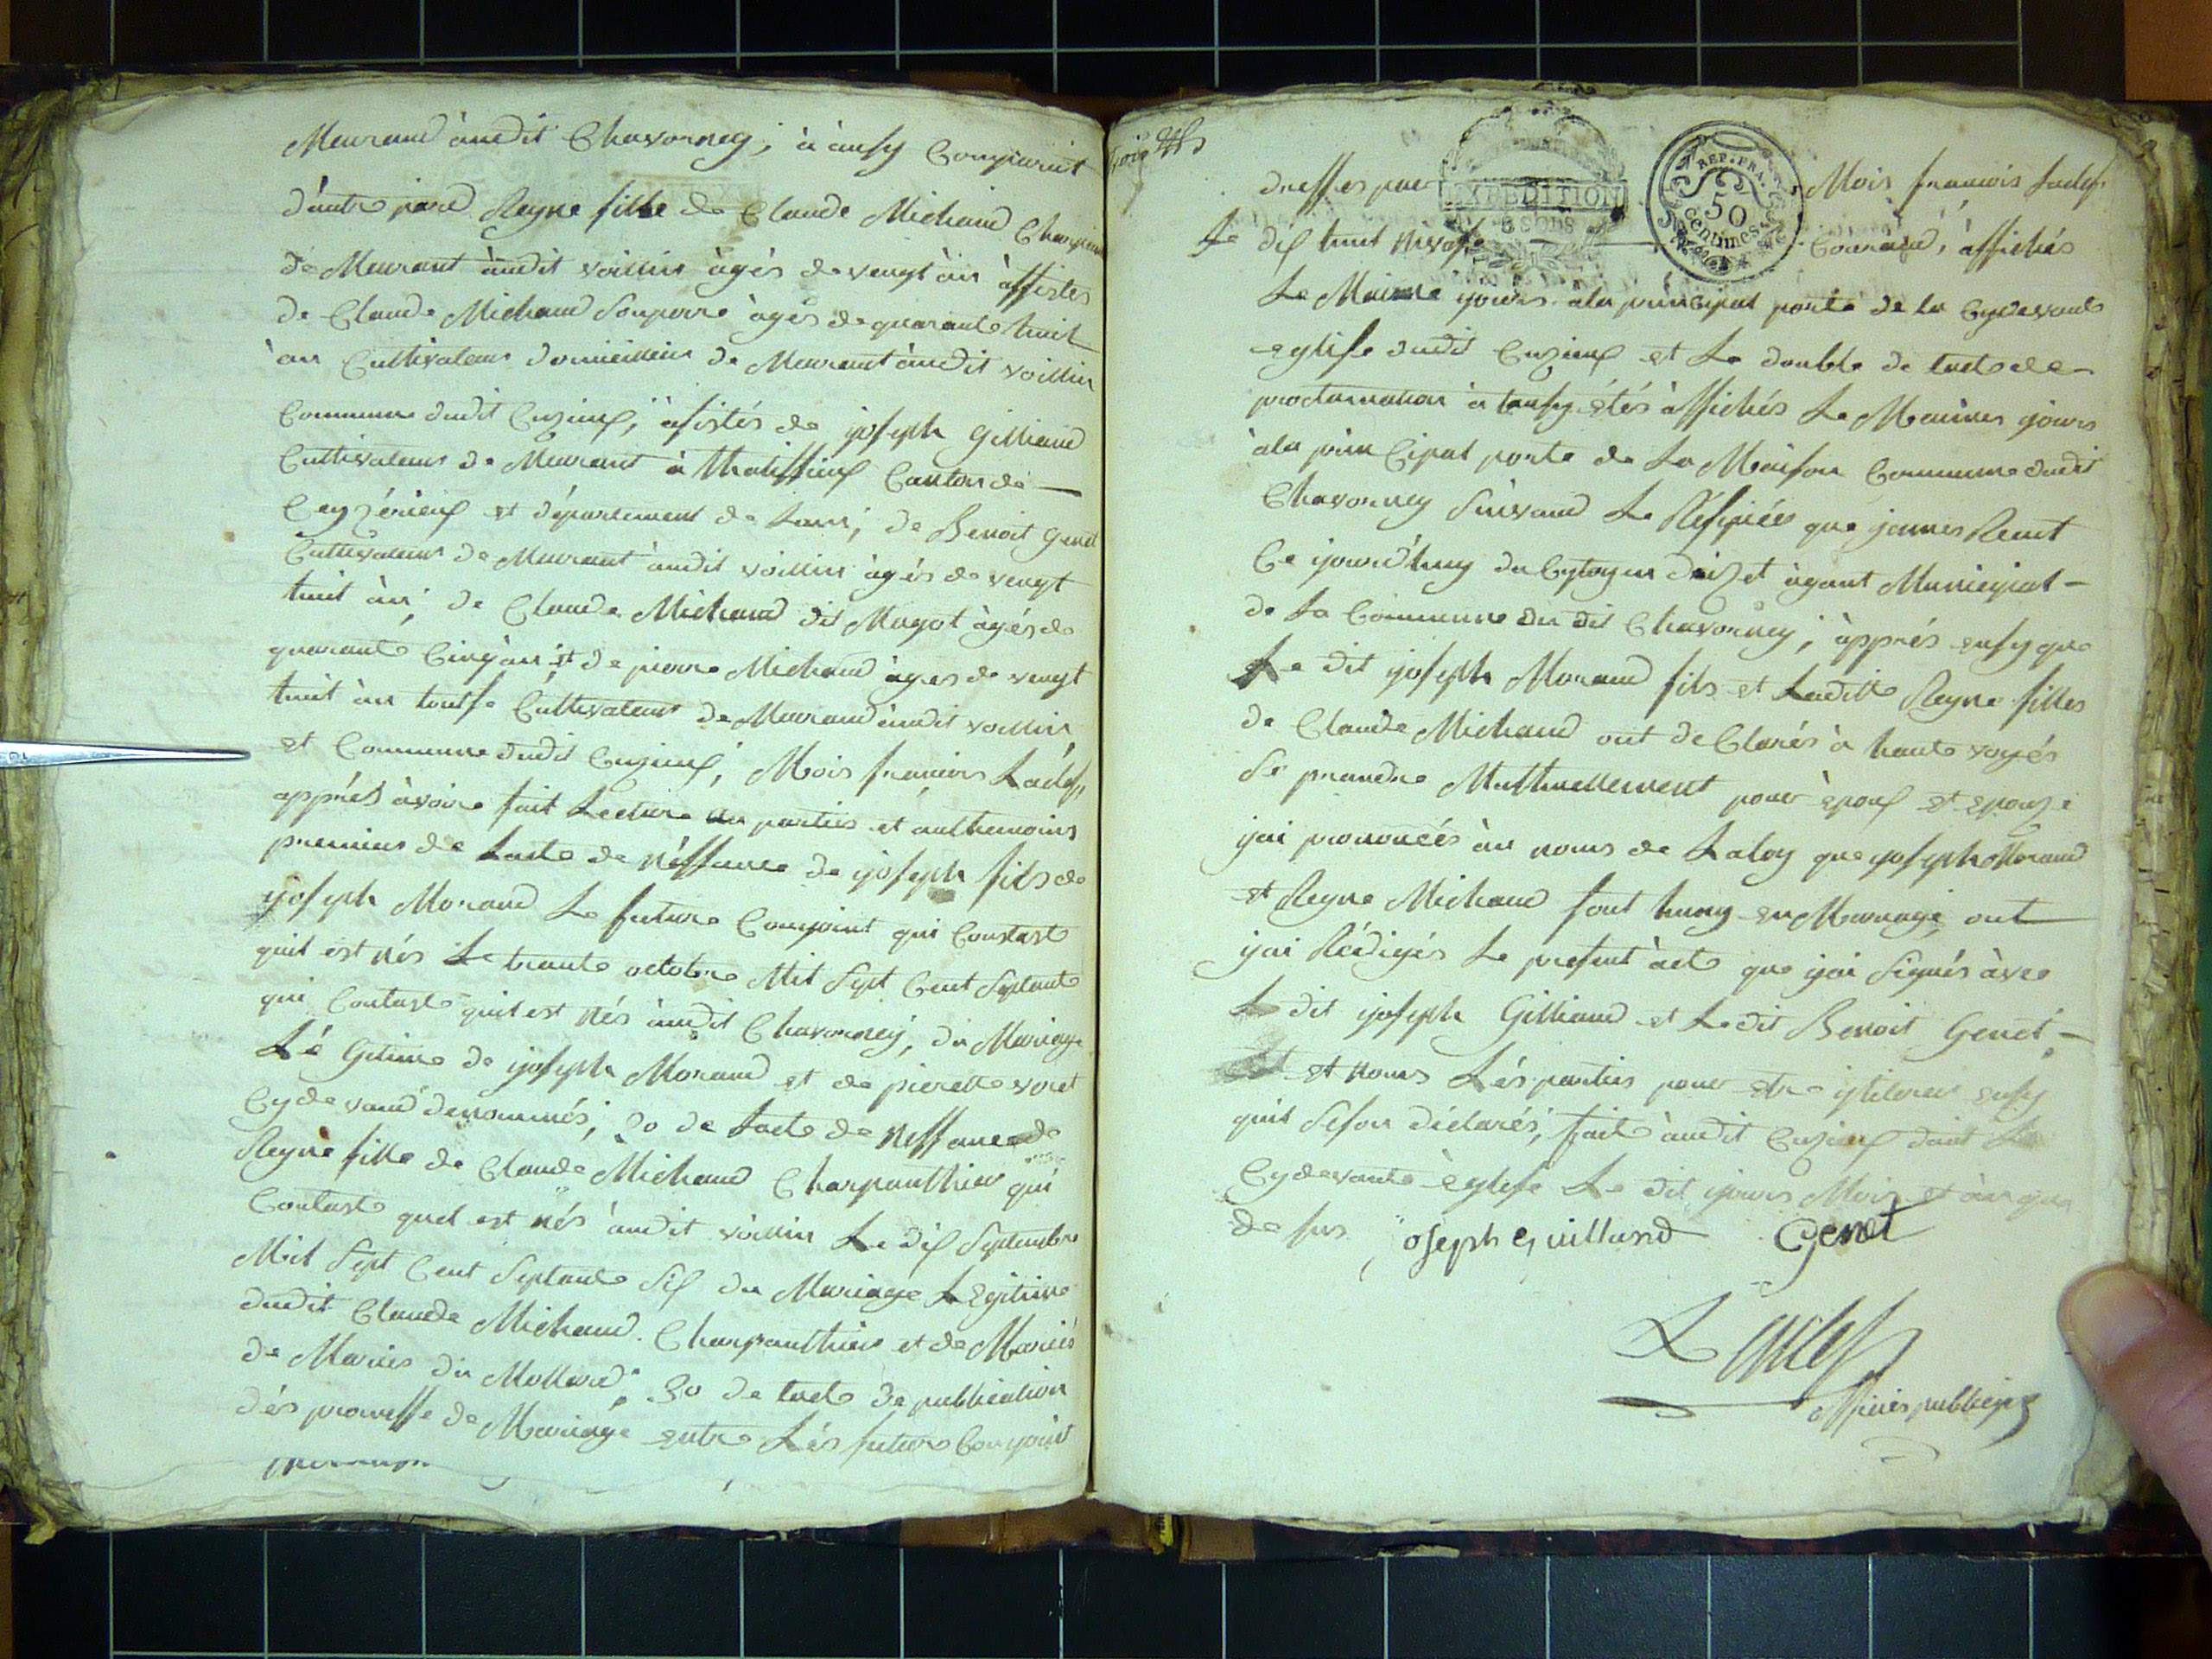 Meurand àudit Chavornay; à àusy Comparüt
d'àutre pard Reyne fille de Claude Michaud Charpan
de Meurant àudit voillin àgés de vengt àn àssistés
de Claude Michaud Son perre àgés de quarante huit
àn Cultivateur domicillier de Meurant àudit voillin
Commune dudit Cuzieux, àsistés de joseph Gilliand
Cultivateur de Meurant à thalissieux Canton de
Ceyzérieux et département de Lain; de Benoit Genet
Cultivateur de Meurant àudit voillin àgés de vengt
huit àn; de Claude Michaud dit Magot àgés de
quarante Cinq àn; et de pierre Michaud àges de vengt
huit àn tousse Cultivateur de Meurand àudit voillin
et Commune dudit Cuzieux; Mois françois Ladef
apprés àvoire fait Lecture au parties et authemoins
premier de Lacte de néssance de joseph fils de
joseph Morand Le future Conjoint qui Constast
quil est nés Le trante octobre Mil Sept Cent Septante
qui Contaste quil est nés àudit Chavorney, du Mariage
Lé Gitime de joseph Morand et de pierette voret
Cydevand dénommés; 20 de Lacte de nessance de
Reyne fille de Claude Michaud Charpanthier qui
Contaste quel est nés àudit voillin Le dix Septembre
Mil Sept Cent Septante Six du Mariage Legitime
dudit Claude Michaud Charpanthier et de Mariés
de Maries du Mollard; 30 de Lacte de publication
dés promesse de Mariage entre Lés future Conjoint
dresses par Mois françois Ladef
EXPEDITION
8 SOLS
REP. FRA.
50
centimes
Le dix huit nivose Courand, àffichés
Le Maime jours ala principal porte de la Cydevande
eglise dudit Cuzieux et Le double de Lacte de
proclamation à àusy étés àffichés Le Maimes jours
àla prin Cipal porte de La Maison Commune dudit
Chavornay Suivand Le Résepicés que jannes Recut
Ce jourd'huy du Cytoyen àgant Municipal
de La Commune du dit Chavorney; àpprés ensy que
Le dit joseph Morand fils et Laditte Reyne filles
de Claude Michaud ont de Clarés à haute voyés
Se prandre Mutuellement pour èpoux et epouze
jai prononcés àu noms de Laloy que joseph Morand
et Reyne Michaud sont huny en Mariage, ont
jai Rédigés Le present àcte que jai Signés àvec
Le dit joseph Gilliand et Ledit Benoit Genet,
et nons Lés parties pour etre ensy
quil Seson déclarés, fait àudit Cuzieux dant La
Cydevante èglise Le dit jours Mois et àn que
de sus joseph Guilland Genet
Ladef
officiés publicque